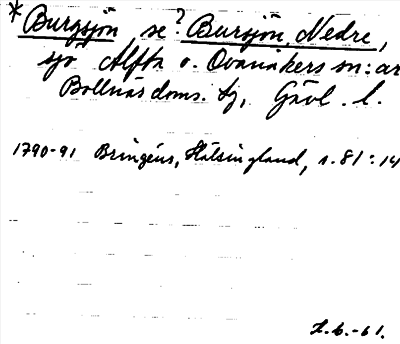 *Burgsjön, se? Bursjön, Nedre,
sjö Alfta o. Ovanåkers sn:ar
Bollnäs doms. tg, Gävl. l.
1790-91 Bringéus, Hälsingland, s. 81:14
-61.